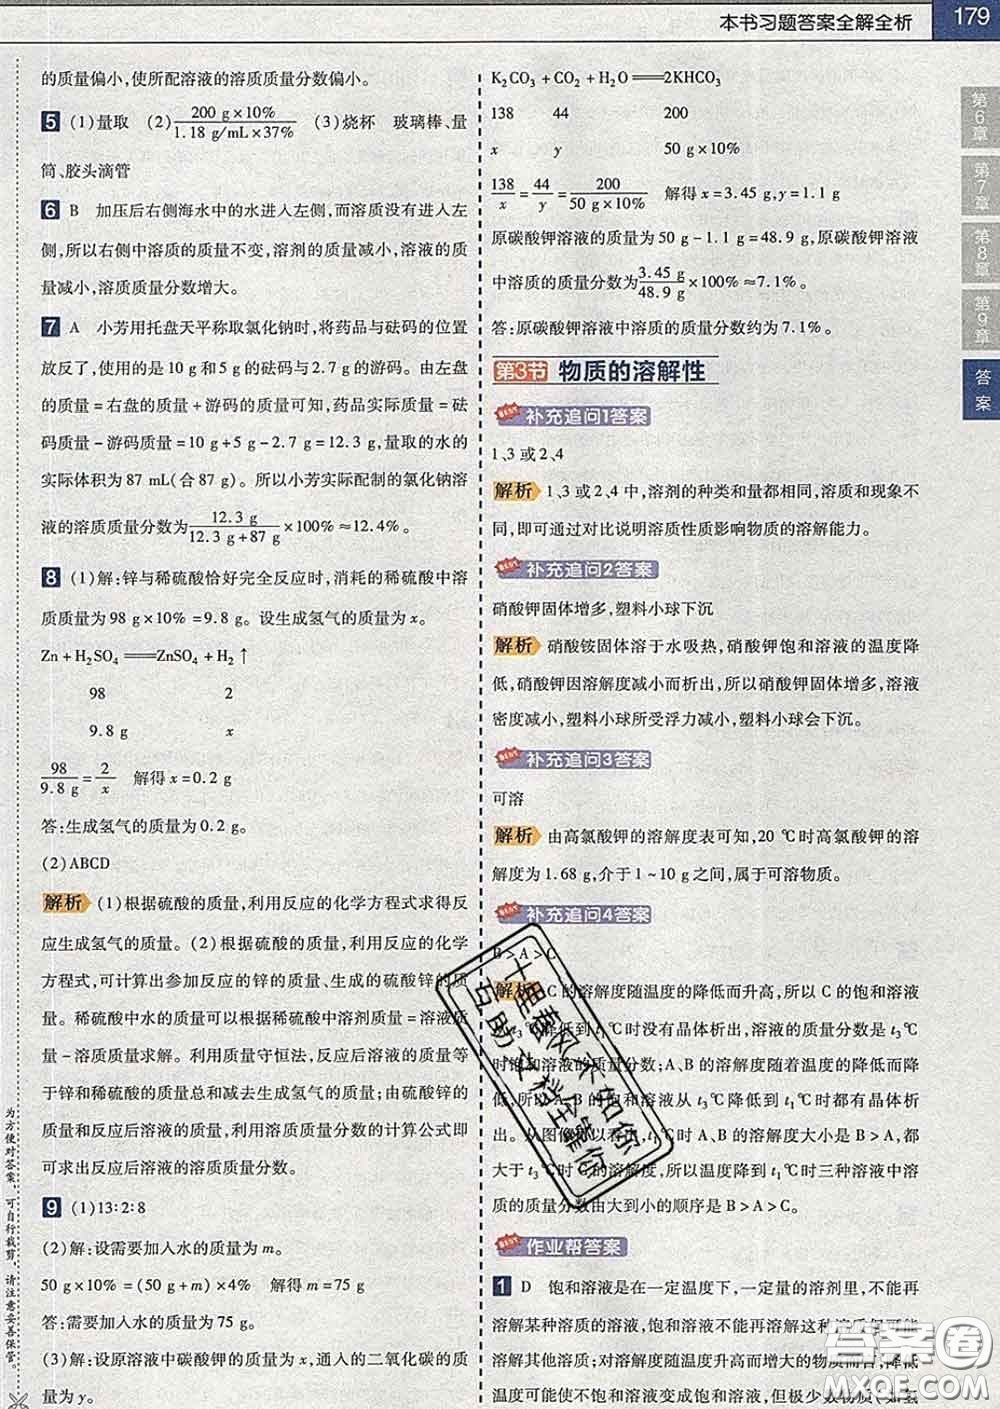 本书习题答案全解全析
179
的质量偏小,使所配溶液的溶质质量分数偏小。
5 (1)量取 (2) 200 g×10% / 1.18 g/mL×37% (3)烧杯 玻璃棒、量
筒、胶头滴管
6 B 加压后右侧海水中的水进入左侧,而溶质没有进入左
侧,所以右侧中溶质的质量不变,溶剂的质量减小,溶液的质
量减小,溶质质量分数增大。
7 A 小芳用托盘天平称取氯化钠时,将药品与砝码的位置
放反了,使用的是 10 g 和 5 g 砝码与 2.7 g 的游码。由左盘
的质量=右盘的质量+游码的质量可知,药品实际质量=砝
码质量-游码质量=10 g+5 g-2.7 g=12.3 g,量取的水的
实际体积为 87 mL(合 87 g)。所以小芳实际配制的氯化钠溶
液的溶质质量分数为 12.3 g / 12.3 g+87 g ×100%≈12.4%。
8 (1)解:锌与稀硫酸恰好完全反应时,消耗的稀硫酸中溶
质质量为 98 g×10%=9.8 g。设生成氢气的质量为 x。
Zn+H₂SO₄══ZnSO₄+H₂↑
98 2
9.8 g x
98 / 9.8 g = 2 / x 解得 x=0.2 g
答:生成氢气的质量为 0.2 g。
(2)ABCD
解析 (1)根据硫酸的质量,利用反应的化学方程式求得反
应生成氢气的质量。(2)根据硫酸的质量,利用反应的化学
方程式,可计算出参加反应的锌的质量、生成的硫酸锌的质
量。稀硫酸中水的质量可以根据稀硫酸中溶剂质量=溶液质
量-溶质质量求解。利用质量守恒法,反应后溶液的质量等
于锌和稀硫酸的质量总和减去生成氢气的质量;由硫酸锌的
质量和反应后溶液的质量,利用溶质质量分数的计算公式即
可求出反应后溶液的溶质质量分数。
9 (1)13:2:8
(2)解:设需要加入水的质量为 m。
50 g×10%=(50 g+m)×4% 解得 m=75 g
答:需要加入水的质量为 75 g。
(3)解:设原溶液中碳酸钾的质量为 x,通入的二氧化碳的质
量为 y。
K₂CO₃+CO₂+H₂O══2KHCO₃
138 44 200
x y 50 g×10%
138 / x = 44 / y = 200 / 50 g×10% 解得 x=3.45 g,y=1.1 g
原碳酸钾溶液的质量为 50 g-1.1 g=48.9 g,原碳酸钾溶液
中溶质的质量分数为 3.45 g / 48.9 g ×100%≈7.1%。
答:原碳酸钾溶液中溶质的质量分数约为 7.1%。
第3节 物质的溶解性
补充追问1答案
1、3 或 2、4
解析 1、3 或 2、4 中,溶剂的种类和量都相同,溶质和现象不
同,即可通过对比说明溶质性质影响物质的溶解能力。
补充追问2答案
硝酸钾固体增多,塑料小球下沉
解析 硝酸铵固体溶于水吸热,硝酸钾饱和溶液的温度降
低,硝酸钾因溶解度减小而析出,所以硝酸钾固体增多,溶液
密度减小,塑料小球所受浮力减小,塑料小球会下沉。
补充追问3答案
可溶
解析 由高氯酸钾的溶解度表可知,20 ℃时高氯酸钾的溶
解度为 1.68 g,介于 1~10 g 之间,属于可溶物质。
补充追问4答案
B>A>C
解析 C 的溶解度随温度的降低而升高,所以 C 的饱和溶液
从 t₃℃降低到 t₁℃时没有晶体析出,溶液的质量分数是 t₃℃
时饱和溶液的质量分数;A、B 的溶解度随着温度的降低而降
低,所以 A、B 的饱和溶液从 t₃℃降低到 t₁℃时都有晶体析
出。从图像可以看出,t₁℃时 A、B 的溶解度大小是 B>A,都
大于 t₃℃时 C 的溶解度,所以温度降到 t₁℃时三种溶液中溶
质的质量分数由大到小的顺序是 B>A>C。
作业帮答案
1 D 饱和溶液是在一定温度下,一定量的溶剂里,不能再
溶解某种溶质的溶液,饱和溶液不能再溶解这种溶质但可能
溶解其他溶质;对溶解度随温度升高而增大的物质而言,降低
温度可能使不饱和溶液变成饱和溶液,但极少数物质(如氢
第6章
第7章
第8章
第9章
答案
为方便对答案,可自行裁剪,请注意妥善保管。
十里春风不如你
互助文档全靠你
答案圈
MXQE.COM